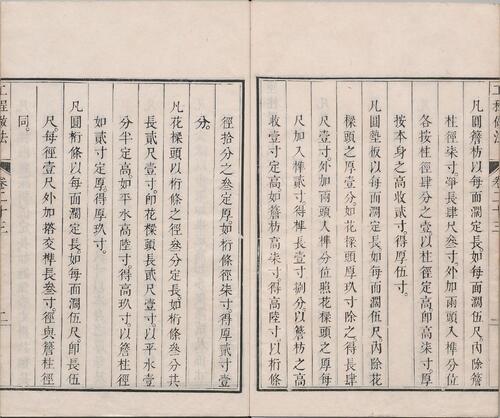 凡圓簷枋以每面濶定長如每面濶伍尺內除簷
柱徑柒寸淨長肆尺叁寸外加兩頭入榫分位
各按柱徑肆分之壹以柱徑定高卽高柒寸厚
按本身之高收貳寸得厚伍寸
凡圓墊板以每面濶定長如每面濶伍尺內除花
樑頭之厚壹分如花樑頭厚玖寸除之得長肆
尺壹寸外加兩頭入榫分位照花樑頭之厚每
尺加入榫貳寸得榫長壹寸捌分以簷枋之高
收壹寸定高如簷枋高柒寸得高陸寸以桁條
徑拾分之叁定厚如桁條徑柒寸得厚貳寸壹
分
凡花樑頭以桁條之徑叁分定長如桁條叁分共
長貳尺壹寸卽花樑頭長貳尺壹寸以平水壹
分半定高如平水高陸寸得高玖寸以簷柱徑
加貳寸定厚得厚玖寸
凡圓桁條以每面濶定長如每面濶伍尺卽長伍
尺每徑壹尺外加搭交榫長叁寸徑與簷柱徑
同
工程做法
卷二十三
二